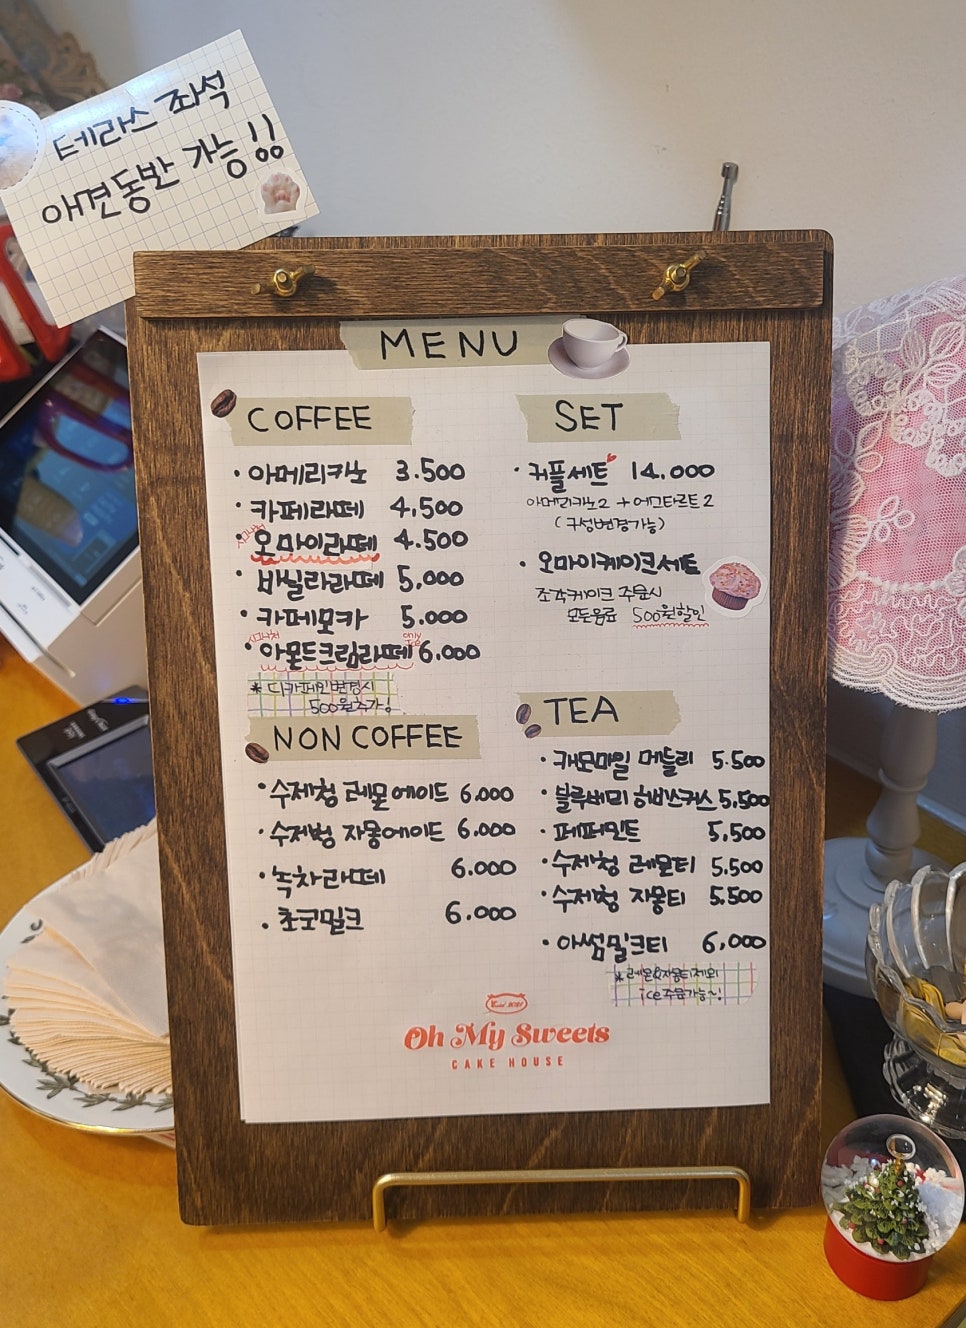 테라스 좌석
애견동반 가능!!
MENU
COFFEE
· 아메리카노 3.500
· 카페라떼 4.500
시그니처
· 오마이라떼 4.500
· 바닐라라떼 5.000
· 카페모카 5.000
시그니처
· 아몬드크림라떼 only ice 6.000
* 디카페인변경시
500원추가!
NON COFFEE
· 수제청 레몬에이드 6.000
· 수제청 자몽에이드 6.000
· 녹차라떼 6.000
· 초코밀크 6.000
SET
· 커플세트 14.000
아메리카노2 + 에그타르트2
(구성변경가능)
· 오마이케이크세트
조각케이크 주문시
모든음료 500원할인
TEA
· 캐모마일 메들리 5.500
· 블루베리 히비스커스 5.500
· 페퍼민트 5.500
· 수제청 레몬티 5.500
· 수제청 자몽티 5.500
· 아쌈밀크티 6.000
* 레몬&자몽티제외
ice주문가능~!
Oh My Sweets
CAKE HOUSE